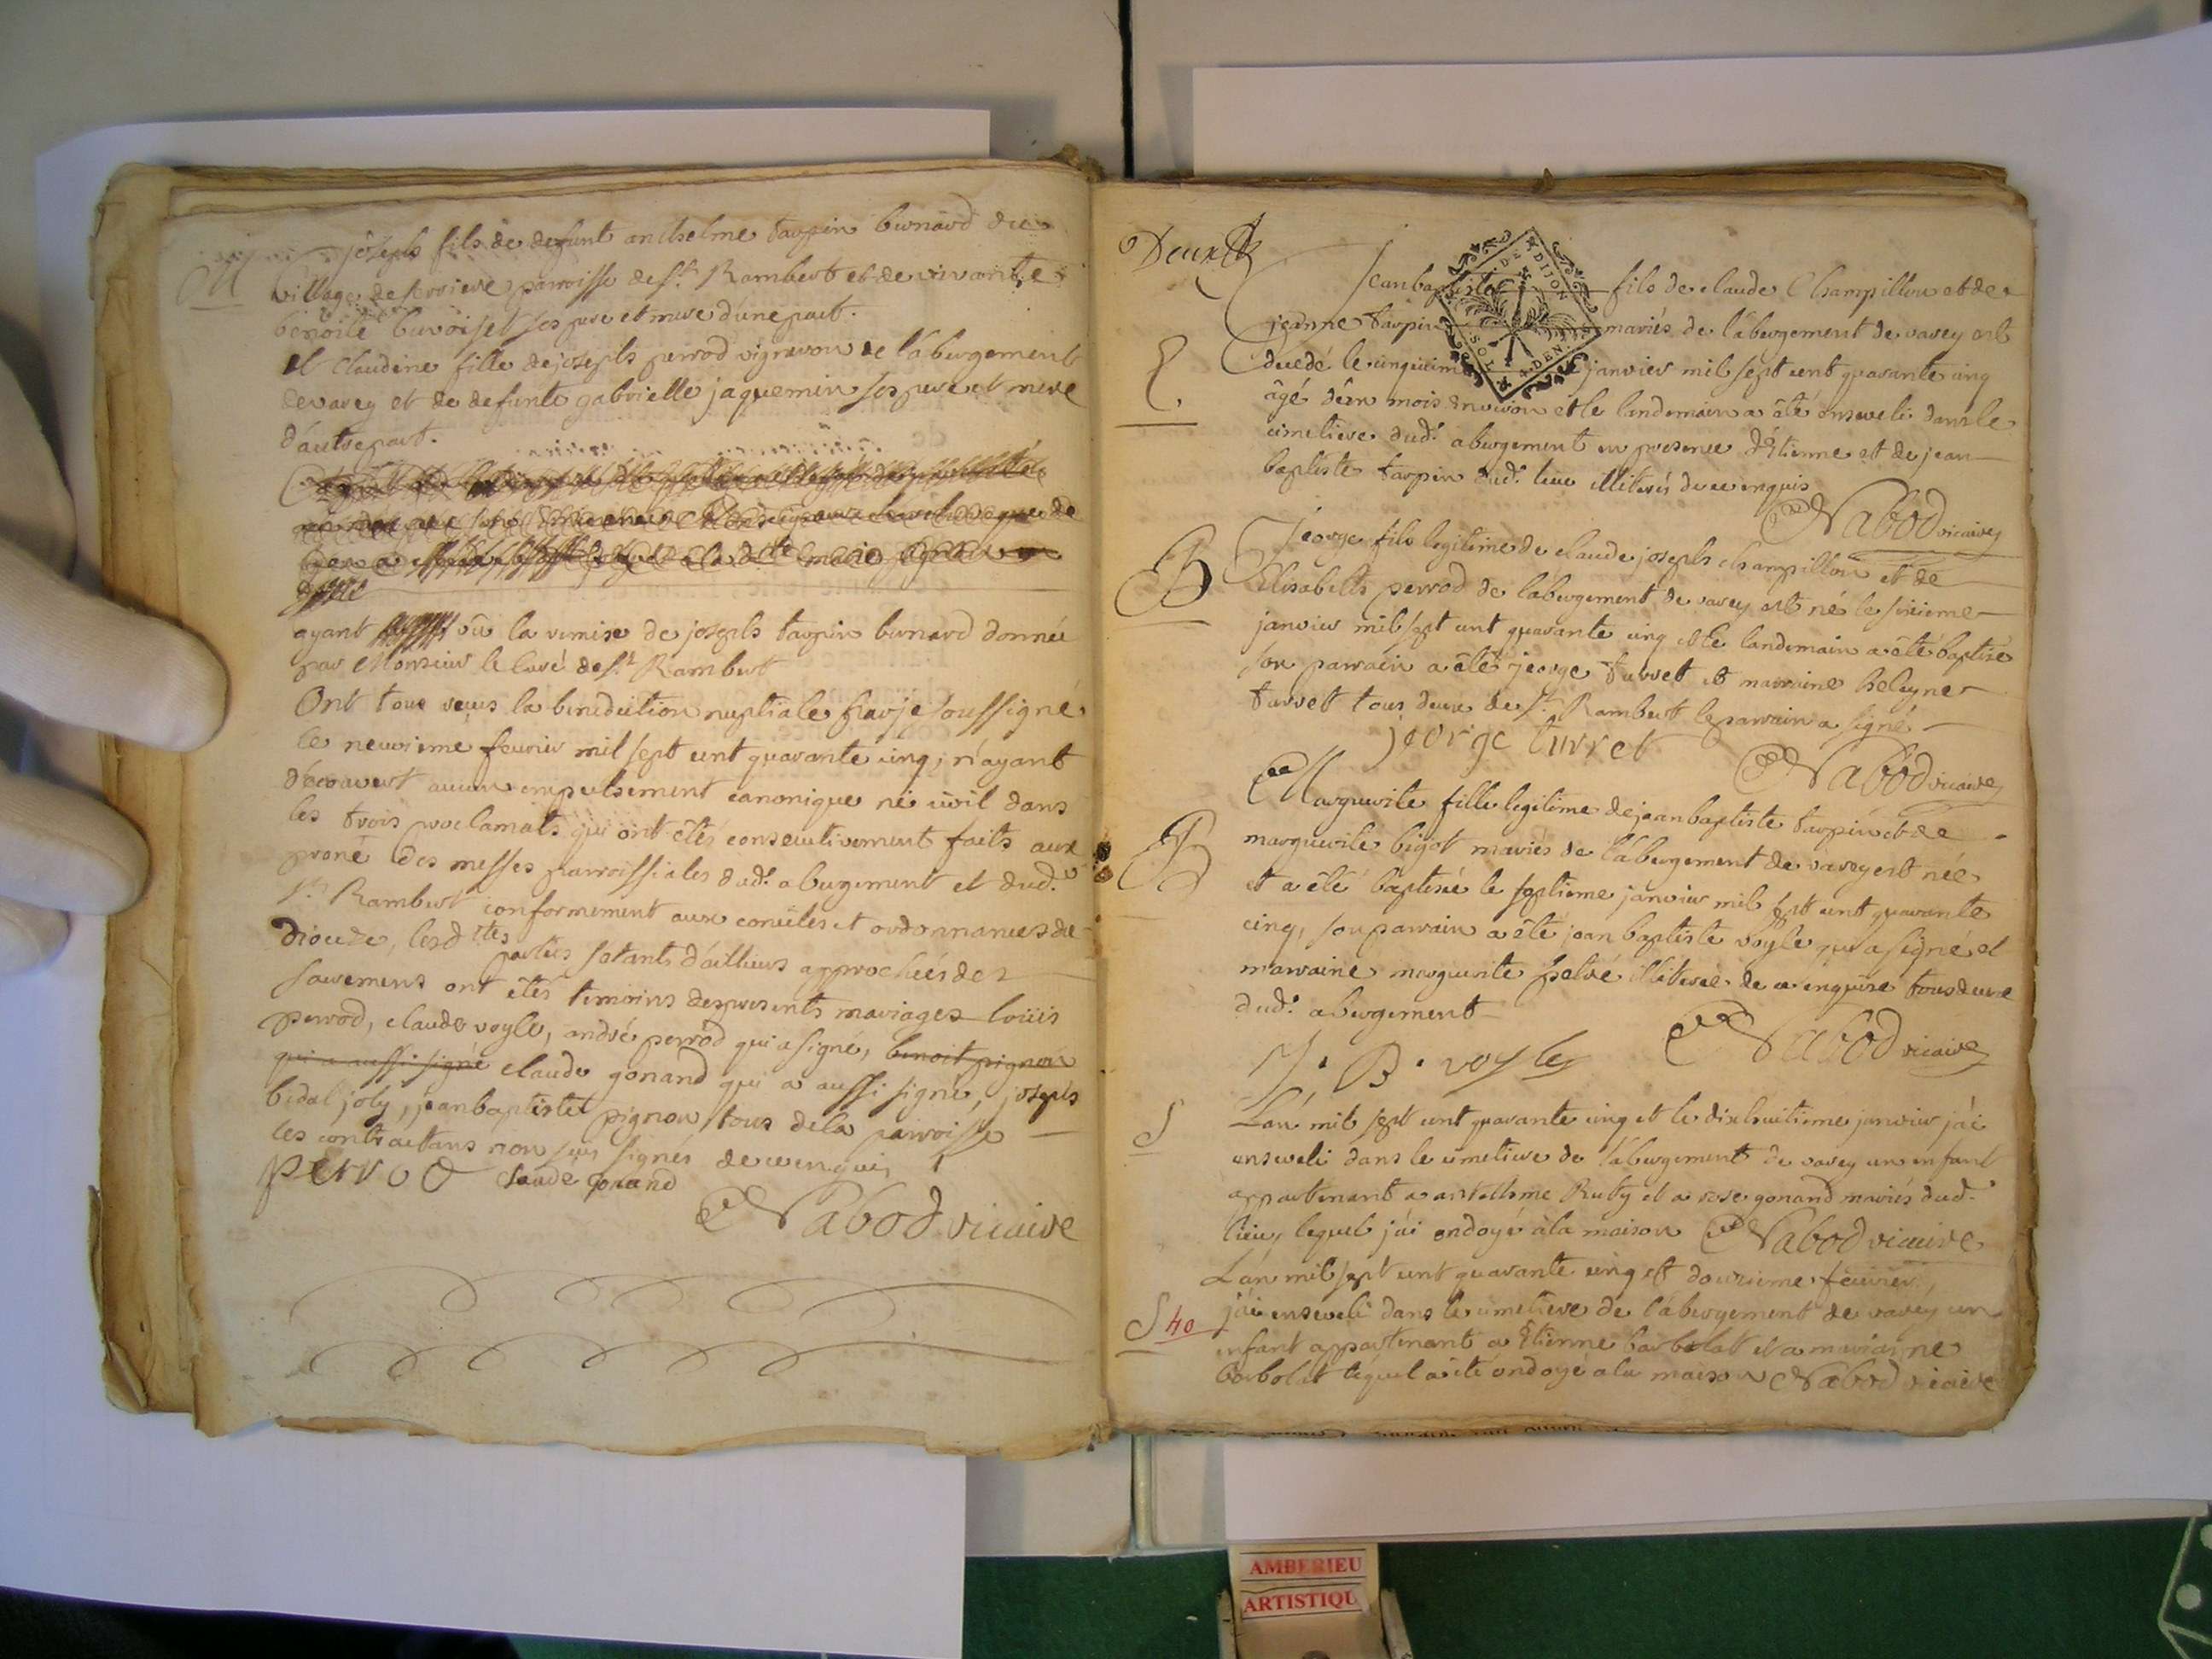 M
joseph fils de defunt anthelme tarpin bernard du
village de serriere parroisse de St. Rambert et de vivante
benoite buvoiset ses pere et mere d'une part.
et claudine fille de joseph perrod vigneron de l'abergement
de varey et de defunte gabrielle jaquemin ses pere et mere
d'autre part.
marie
ayant vû la remise de joseph tarpin bernard donnée
par Monsieur le Curé de St. Rambert
Ont tous reçus la benediction nuptiale par je soussigné
le neuvieme fevrier mil sept cent quarante cinq, n'ayant
découvert aucun empechement canonique ni civil dans
les trois proclamats qui ont étés consecutivement faits aux
prone des messes parroissiales dud. abergement et dud.
St. Rambert conformement aux conciles et ordonnances du
Dioceze, lesdtes parties s'etants d'ailleurs approchées des
sacremens ont étés temoins des presents mariages loüis
perrod, claude voyle, andré perrod qui a signé, benoit pignon
qui a aussi signé claude gonand qui a aussi signé, joseph
bidal joly, jean baptiste pignon tous de la parroisse
les contractans non signés de ce enquis
perrod claude gonand
Nabod vicaire
Deux
Jean baptiste fils de claude Champillon et de
jeanne tarpin mariés de l'abergement de varey est
decedé le cinquieme janvier mil sept cent quarante cinq
âgé d'un mois environ et le landemain a été enseveli dans le
cimetiere dud. abergement en presence d'Etienne et de jean
baptiste tarpin dud. lieu illiterés de ce enquis
Nabod vicaire
DE DIJON
SOL
4 DEN.
B
jeorge fils legitime de claude joseph champillon et de
Elisabeth perrod de l'abergement de varey est né le sixieme
janvier mil sept cent quarante cinq et le landemain a été baptisé
son parrain a été jeorge turret et marraine heleyne
turret tous deux de St. Rambert le parrain a signé
jeorge turret Nabod vicaire
B
Marguerite fille legitime de jean baptiste tarpin et de
marguerite bigot mariés de l'abergement de varey est née
et a été baptisée le septieme janvier mil sept cent quarante
cinq, son parrain a été jean baptiste voyle qui a signé et
marraine marguerite illiterée de ce enquise tous deux
dud. abergement
J. B. voyle Nabod vicaire
S
L'an mil sept cent quarante cinq et le dixhuitieme janvier j'ai
enseveli dans le cimetiere de l'abergement de varey un enfant
appartenant a anthelme Ruty et a rose gonand mariés dud.
lieu, lequel j'ai ondoyé à la maison Nabod vicaire
S 40
L'an mil sept cent quarante cinq et douzieme fevrier
j'ai enseveli dans le cimetiere de l'abergement de varey un
enfant appartenant a Etienne barbolat et a mariane
barbolat lequel a été ondoyé a la maison Nabod vicaire
AMBERIEU
ARTISTIQU